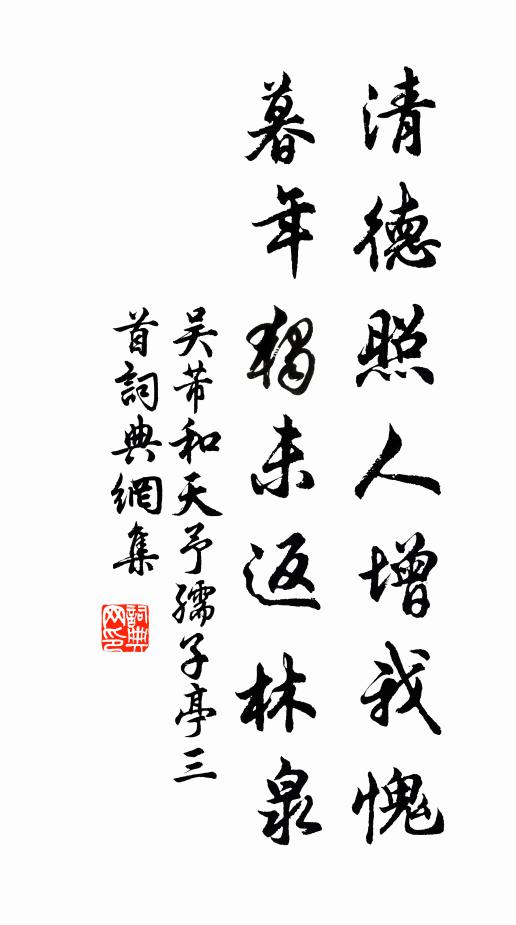 清德照人增我愧
暮年獨未返林泉
吴芾和天予孺子亭三
首詞典網集
詞典
网印